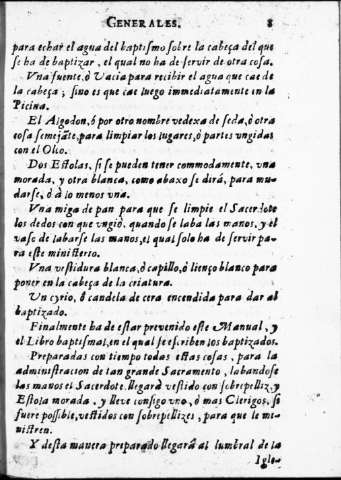 GENERALES. 8
para echar el agua del baptismo sobre la cabeça del que
se ha de baptizar, el qual no ha de servir de otra cosa.
Vna fuente, ò Vacia para recibir el agua que cae de
la cabeça; sino es que cae luego immediatamente en la
Picina.
El Algodon, ò por otro nombre vedexa de seda, ò otra
cosa semejãte, para limpiar los lugares, ò partes vngidas
con el Olio.
Dos Estolas, si se pueden tener commodamente, vna
morada, y otra blanca, como abaxo se dirá, para mu-
darse, ò à lo menos vna.
Vna miga de pan para que se limpie el Sacerdote
los dedos con que vngiò, quando se laba las manos, y el
vaso de labarse las manos, el qual solo ha de servir pa-
ra este ministerio.
Vna vestidura blanca, ò capillo, ò lienço blanco para
poner en la cabeça de la criatura.
Un cyrio, ò candela de cera encendida para dar al
baptizado.
Finalmente ha de estar prevenido este Manual, y
el Libro baptismal, en el qual se escriben los baptizados.
Preparadas con tiempo todas estas cosas, para la
administracion de tan grande Sacramento, labandose
las manos el Sacerdote, llegarà vestido con sobrepelliz, y
Estola morada, y lleve consigo uno, ò mas Clerigos, si
fuere possible, vestidos con sobrepellizes, para que le mi-
nistren.
Y desta manera preparado llegarà al lumbral de la
Igle-